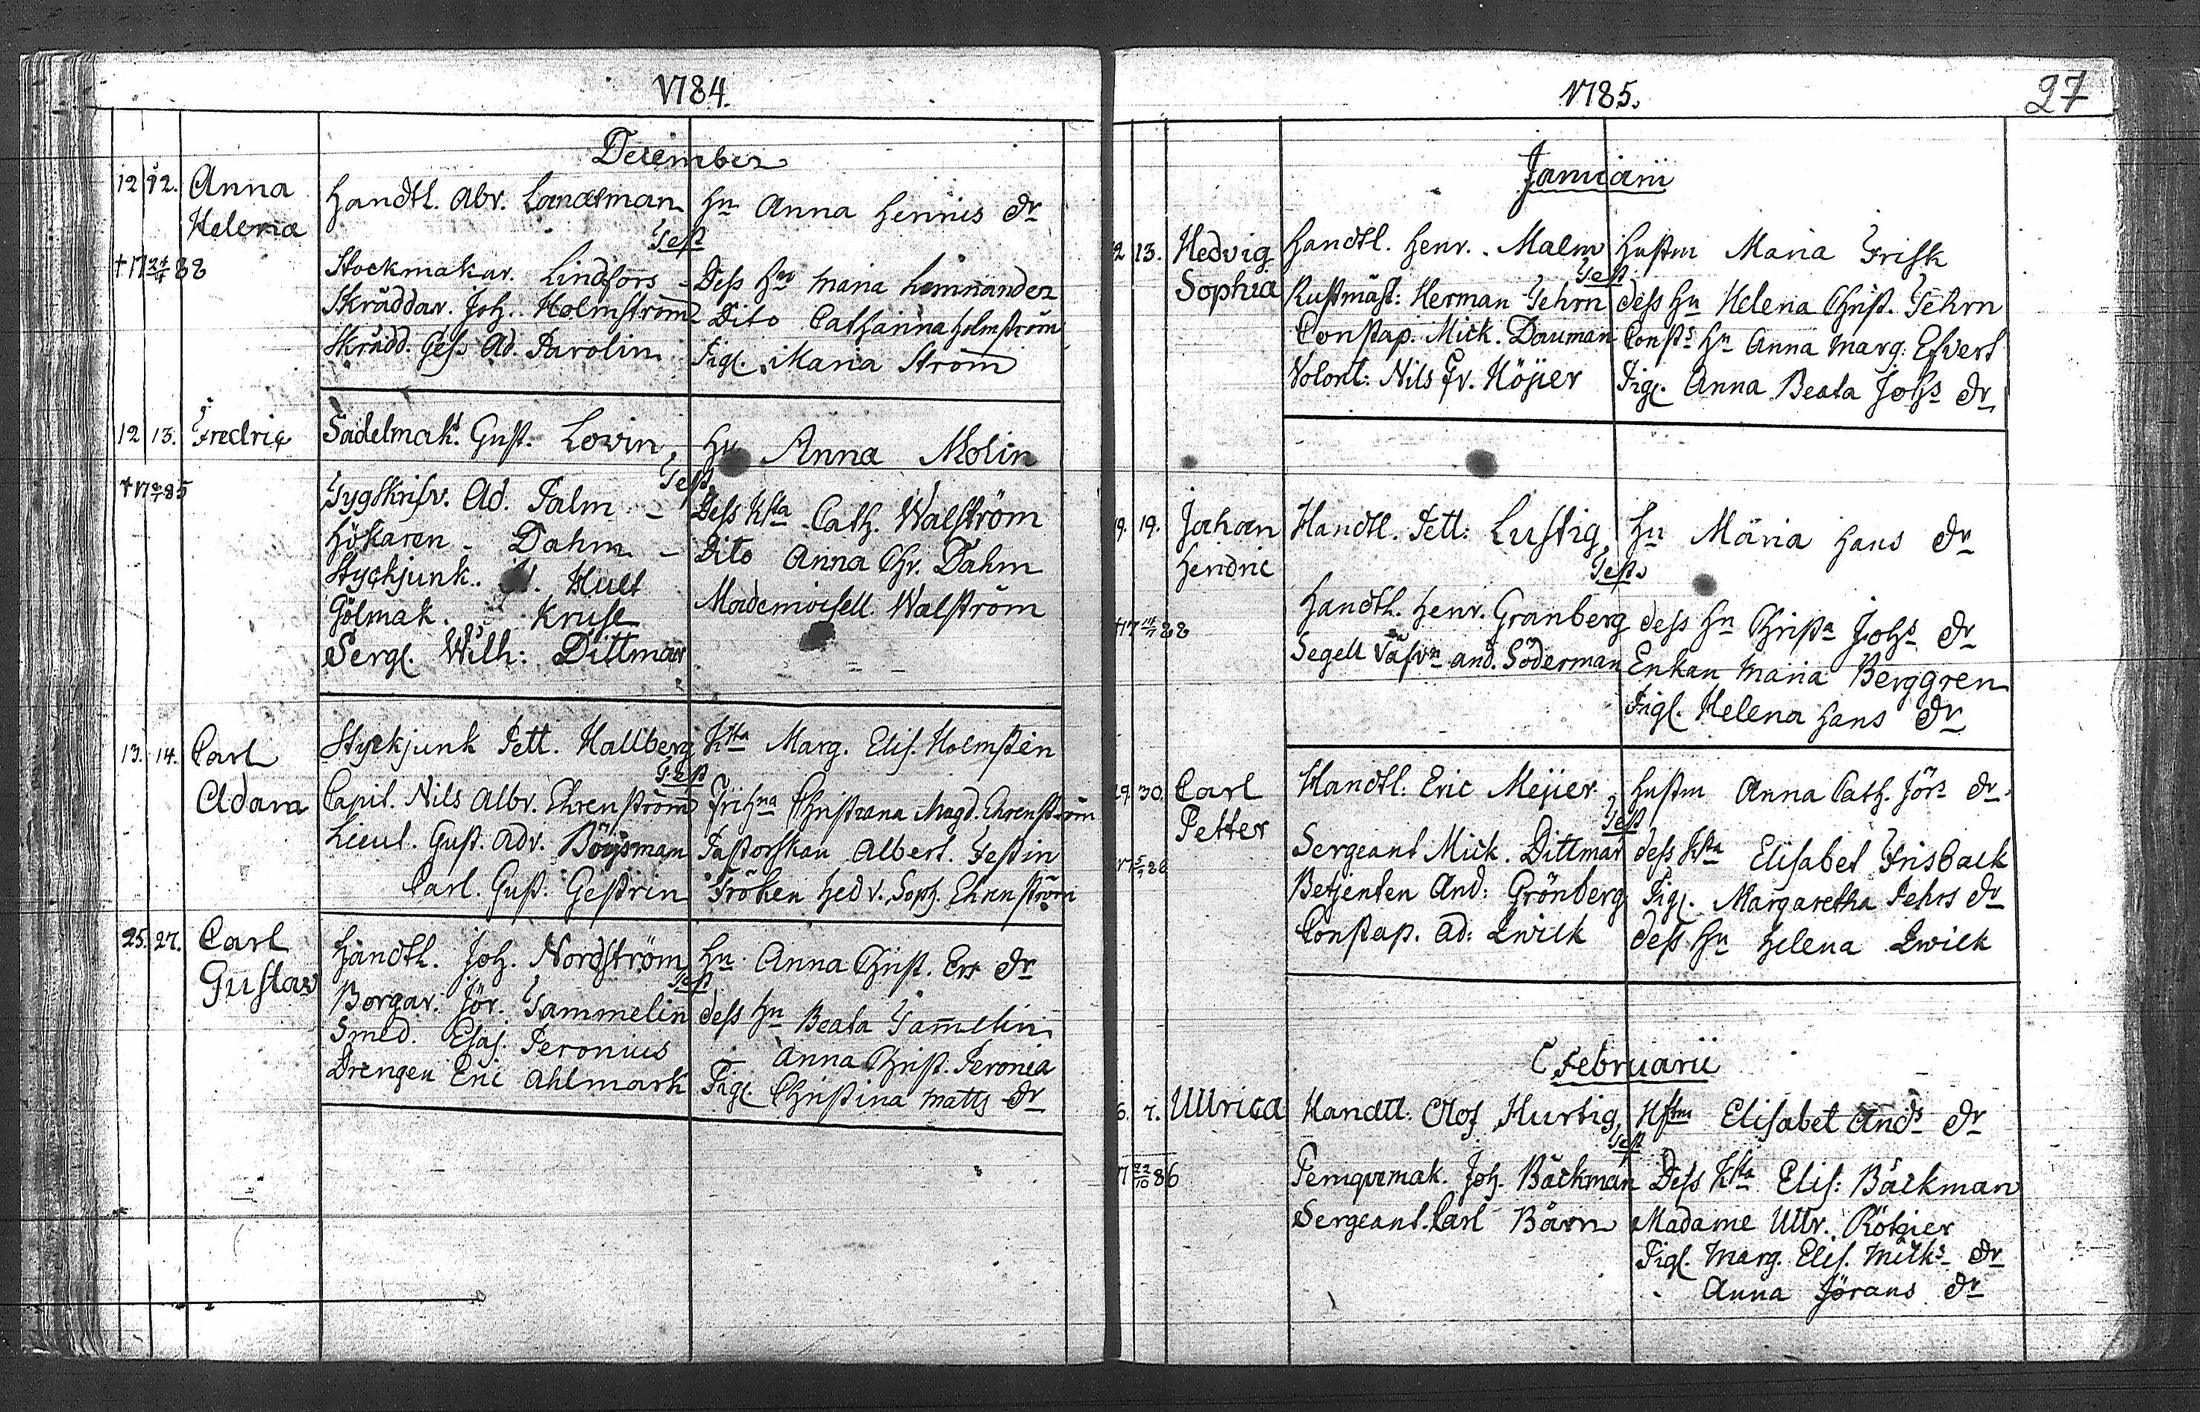 1784.
December
12 12. Anna Handtl. Abr. Landtman Hu Anna Hennis dr
Helena
Test
†17 88 Stockmakar. Lindfors - Dess Hu Maria Liminander
Skräddar. Joh. Holmström - Dito Catharina Holmström
Skrädd. Gess Ad. Parolin Pigl. Maria Ström
12 13. Fredric Sadelmak. Gust. Lovin Hu Anna Molin
Test
†17 85 Tygskrifv. Ad. Palm - Dess Ksta Cath. Walström
Hökaren - Dahm - Dito Anna Chr. Dahm
Styckjunk. Hult Mademoisell. Walström
Gölmak. Kruse
Serg. Wilh: Dittmar
13. 14. Carl Styckjunk Pett. Hallberg Ksta Marg. Elis. Holmsten
Test
Adam Capit. Nils Albr. Ehrenström Frihna Christiana Magd. Ehrenström
Lieut. Gust. Adr. Böijsman Pastorskan Albert. Festin
Carl. Gust. Gestrin Fröken Hedv. Soph. Ehrenström
25. 27. Carl Handtl. Joh. Nordström Hu. Anna Christ. Er dr
Gustav Test
Borgar. Jör. Tammelin dess Hu Beata Tammelin
Smed. Esaj. Peronius Anna Christ. Peronia
Drengen Eric Ahlmark Pigl. Christina Matts dr
1785.
27
Januarii
2 13. Hedvig Handtl. Henr. Malm Hustru Maria Frisk
Test
Sophia Rustmäst: Herman Fehrn dess Hu Helena Christ. Fehrn
Constap. Mick. Dauman Const Hu Anna Marg: Efvert
Volont: Nils Fr. Höjier Pigl. Anna Beata Johs dr
19. 19. Johan Handtl. Pett: Lustig Hu Maria Hans dr
Hendric Test
17 88 Handtl. Henr. Granberg dess Hu Christa Johs dr
Segell Väfvn And. Söderman Enkan Maria Berggren
Pigl. Helena Hans dr
29. 30. Carl Handtl. Eric Mejier Hustru Anna Cath. Jörs dr
Petter Test
17 86 Sergeant Mick. Dittmar dess Ksta Elisabet Frisback
Betjenten And: Grönberg Pigl. Margaretha Pehrs dr
Constap. Ad: Qwick dess Hu Helena Qwick
Februarii
6. 7. Ullrica Handtl. Olof Hurtig, Hstru Elisabet Ands dr
Test
17 22/10 86 Perugvemak. Joh. Bäckman Dess Ksta Elis: Bäckman
Sergeant. Carl Bärn Madame Ullr. Rötgier
Pigl. Marg. Elis. Micks dr
Anna Jörans dr